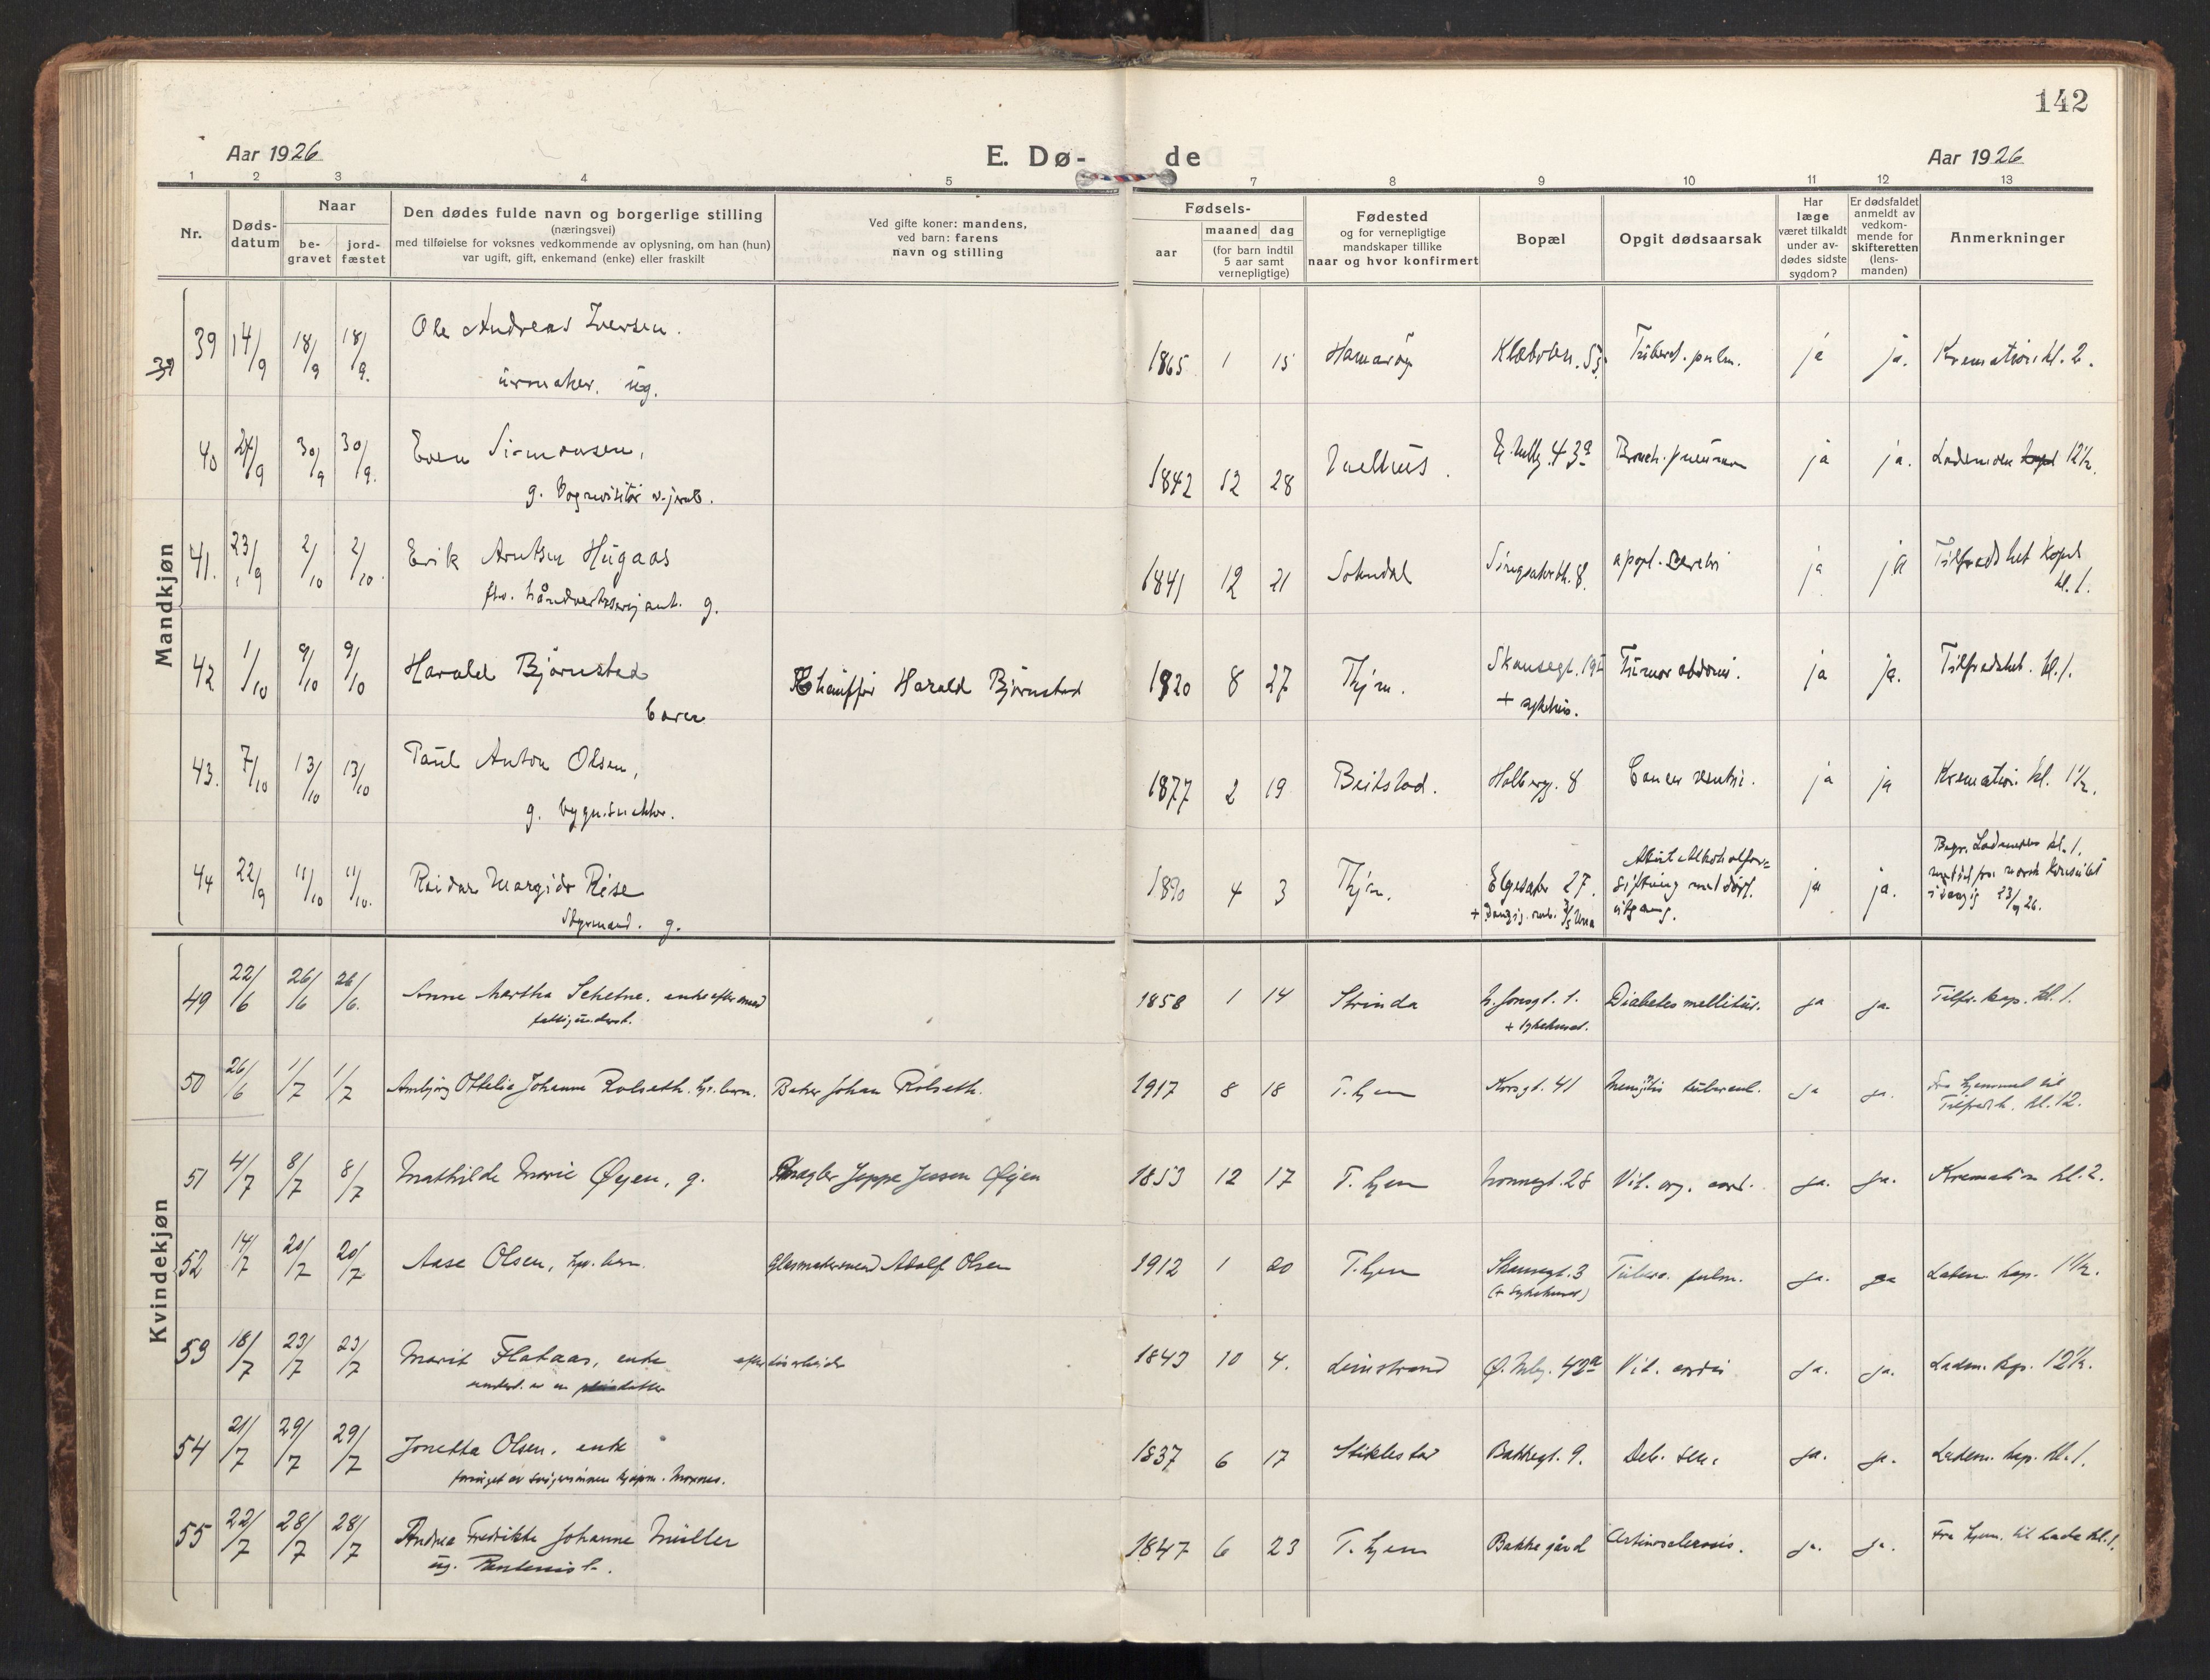 142
Aar 1926
E. Dø-
de
Aar 1926
1 2 3 4 5 7 8 9 10 11 12 13
Nr.
Døds-
datum
Naar
be-
gravet
jord-
fæstet
Den dødes fulde navn og borgerlige stilling
(næringsvei)
med tilføielse for voksnes vedkommende av oplysning, om han (hun)
var ugift, gift, enkemand (enke) eller fraskilt
Ved gifte koner: mandens,
ved barn: farens
navn og stilling
Fødsels-
aar
maaned dag
(for barn indtil
5 aar samt
vernepligtige)
Fødested
og for vernepligtige
mandskaper tillike
naar og hvor konfirmert
Bopæl
Opgit dødsaarsak
Har
læge
været tilkaldt
under av-
dødes sidste
sygdom?
Er dødsfaldet
anmeldt av
vedkom-
mende for
skifteretten
(lens-
manden)
Anmerkninger
Mandkjøn
39
39 14/9 18/9 18/9. Ole Andreas Iversen.
urmaker. ug.
1865 1 15 Hamarøy Tuberk. pulm. ja ja. Kremation kl. 2.
40 24/9 30/9 30/9. Even Simonsen,
g. Vognvisitør v. jernb.
1842 12 28 43a Bronch. pneumon ja ja. Lademoen 12½.
41. 23/9 2/10 2/10. Erik Arntsen Hugaas
g.
1841 12 21 Sokndal 8. apopl. cerebri ja ja Tilfredshet Kapel
kl. 1.
42 1/10 9/10 9/10 Harald Bjørnstad
barn
Chauffør Harald Bjørnstad
1920 8 27 Thjm. Skansegt. 19
+ sykehus.
Tumor abdomi. ja ja. Tilfredshet. kl. 1.
43. 7/10 13/10 13/10 Paul Anton Olsen,
g.
1877 2 19 Beitstad. Holbergg. 8 Cancer ventri. ja ja Kremation. kl. 1½.
44 22/9 11/10 11/10. Reidar Margido Riise
Styrmand. g.
1890 4 3 Thjm. Elgesæter 27.
+ Danzig
Akut Alkoholfor=
giftning med dødl.
utgang.
ja ja. Begr. Lademoen kl. 1.
meddel. fra norsk konsulat
i Danzig 23/9 26.
Kvindekjøn
49 22/6 26/6 26/6. Anne Martha Schetne. enke efter
fattigunderst.
1858 1 14 Strinda 1.
+ sykehuset.
Diabetes mellitus. ja ja. Tilfr. kap. kl. 1.
50 26/6 1/7 1/7 Ambjørg Ottelie Johanne Rolseth. hj. barn. Baker Johan Rolseth.
1917 8 18 T.hjem Korsgt. 41 Meningitis tubercul. ja ja. Fra hjemmet til
Tilfredsh. kl. 12.
51 4/7 8/7 8/7 Mathilde Marie Øyen, g. Mægler Jeppe Jessen Øyen
1853 12 17 T.hjem Nonnegt. 28 Vit. org. cord. ja. ja. Kremation kl. 2.
52 14/7 20/7 20/7 Aase Olsen, hj. barn. Glasmakersvend Adolf Olsen
1912 1 20 T.hjem Skansegt. 3
(+ Sykehuset)
Tuberc. pulm. ja. ja Ladem. kap. 1½.
53 18/7 23/7 23/7 Marit Flataas, enke efter
underst. av en datter
1843 10 4. Leinstrand 42a Vit. cordis ja. ja. Ladem. kap. 12½.
54 21/7 29/7 29/7 Jonetta Olsen. enke
forsørget av svigersønnen kjøpm. Moxnes.
1837 6 17 Stiklestad Bakkegt. 9. Deb. sen. ja. ja. Ladem. kap. kl. 1.
55 22/7 28/7 28/7 Andrea Fredrikke Johanne Müller
ug.
1847 6 23 T.hjem Bakkegård Arteriosclerosis. ja. ja. Fra hjem. til Lade kl. 1.